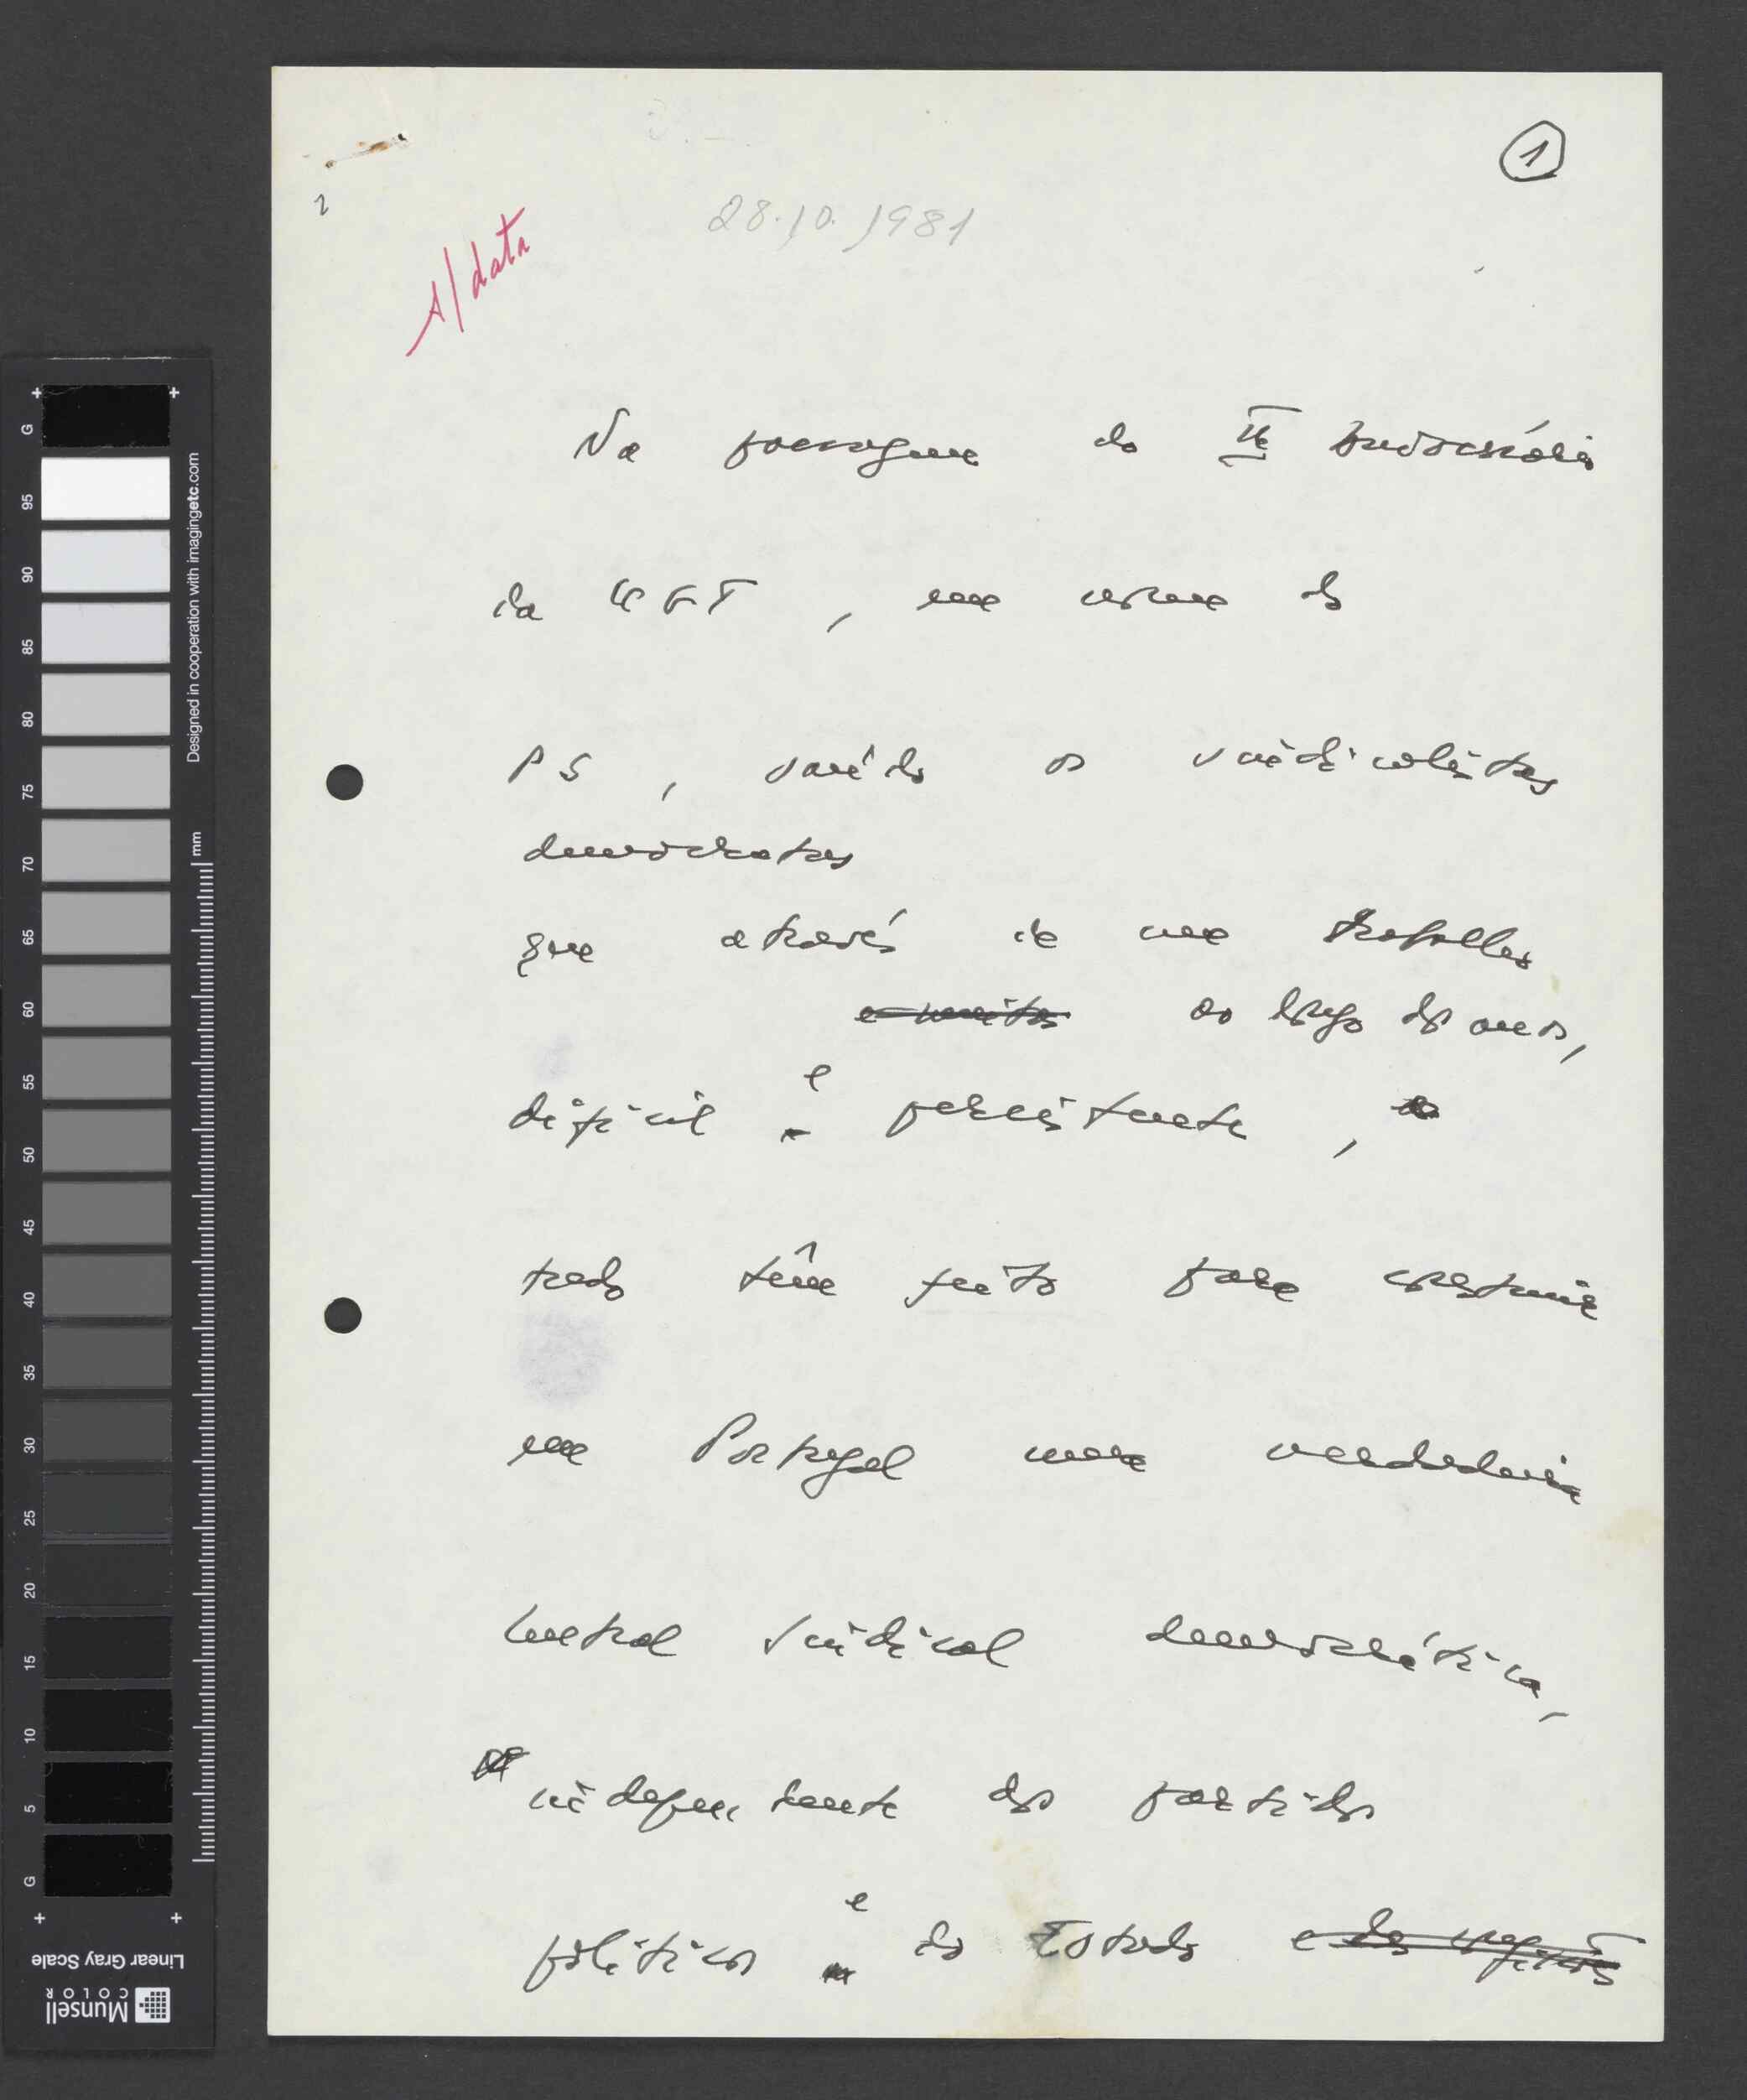 1
2
s/data
28.10.1981
Na passagem do IIº aniversário
da UGT, em nome do
PS, saúdo os sindicalistas
democratas
que através de um trabalho
ao longo dos anos,
difícil e persistente,
tudo têm feito para construir
em Portugal uma verdadeira
Central Sindical democrática,
independente dos partidos
políticos e do Estado e das
G 95 90 85 80 75 70 65 60 55 50 45 40 35 30 25 20 15 10 5 G
mm
Designed in cooperation with imagingetc.com
Linear Gray Scale
Munsell
COLOR